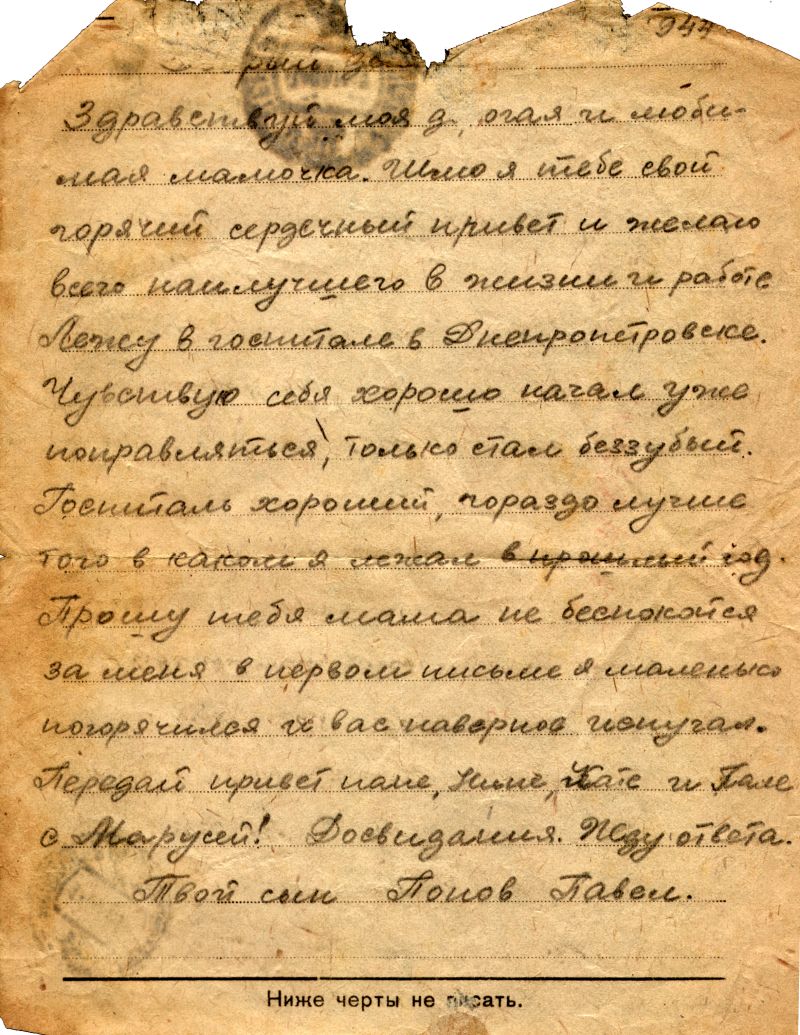 944
Здравствуй моя д огая и люби-
мая мамочка. Шлю я тебе свой
горячий сердечный привет и желаю
всего наилучшего в жизни и работе
Лежу в госпитале в Днепропетровске.
Чувствую себя хорошо начал уже
поправляться, только стал беззубый.
Госпиталь хороший, гораздо лучше
того в каком я лежал в прошлый год.
Прошу тебя мама не беспокойся
за меня в первом письме я маленько
погорячился и вас наверное испугал.
Передай привет папе, Нине, Кате и Пале
с Марусей! Досвидания. Жду ответа.
Твой сын Попов Павел.
Ниже черты не писать.